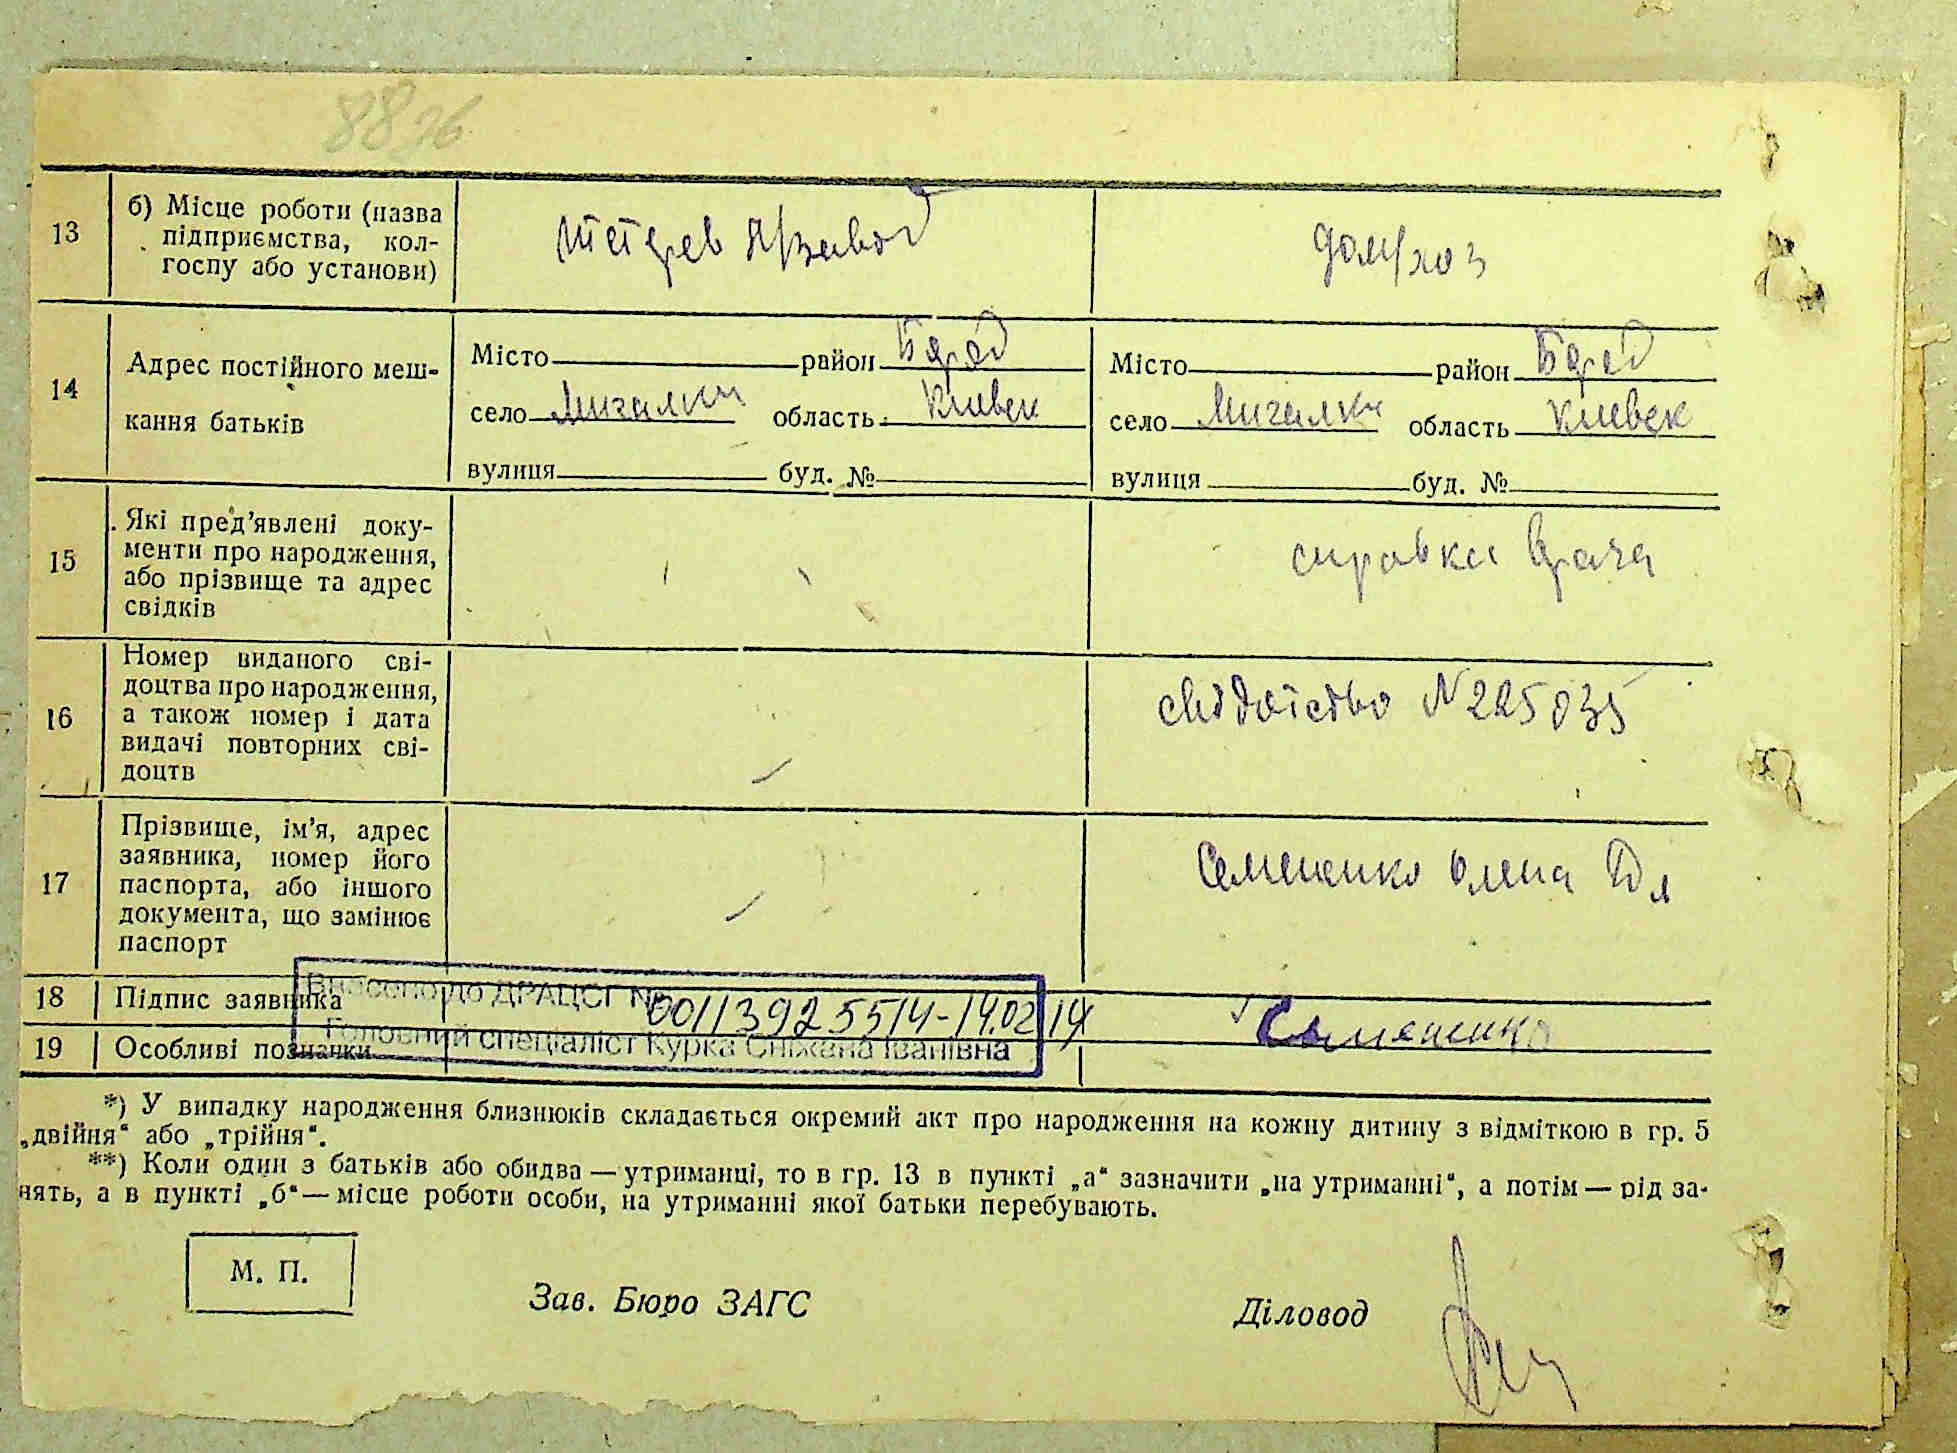 8826
13
б) Місце роботи (назва
підприємства, кол-
госпу або установи)
Тетерев Я/завод
дом/хоз
14
Адрес постійного меш-
кання батьків
Місто район Бород
село Мигалки область Киевск
вулиця буд. №
Місто район Бород
село Мигалки область Киевск
вулиця буд. №
15
Які пред’явлені доку-
менти про народження,
або прізвище та адрес
свідків
справка врача
16
Номер виданого сві-
доцтва про народження,
а також номер і дата
видачі повторних сві-
доцтв
свідоцтво N 225035
17
Прізвище, ім’я, адрес
заявника, номер його
паспорта, або іншого
документа, що замінює
паспорт
Семененко Олена
18 Підпис заявника
Внесено до ДРАЦСГ № 00113925514-14.02.14
Семененко
19 Особливі позначки
Головний спеціаліст Курка Сніжана Іванівна
*) У випадку народження близнюків складається окремий акт про народження на кожну дитину з відміткою в гр. 5
„двійня“ або „трійня“.
**) Коли один з батьків або обидва — утриманці, то в гр. 13 в пункті „а“ зазначити „на утриманні“, а потім — рід за-
нять, а в пункті „б“ — місце роботи особи, на утриманні якої батьки перебувають.
М. П.
Зав. Бюро ЗАГС
Діловод